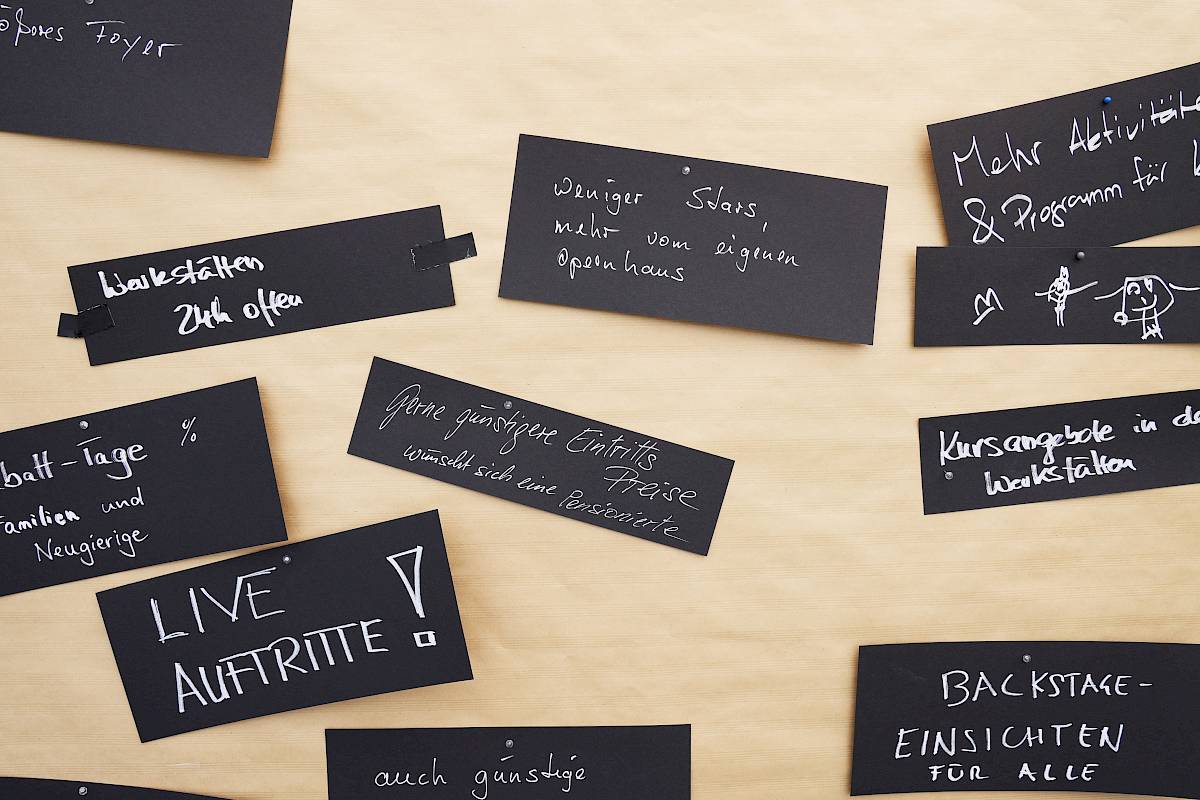 Foyer
Werkstätten
24h offen
weniger Stars,
mehr vom eigenen
Opernhaus
Mehr Aktivitäte
& Programm für
Gerne günstigere Eintritts
Preise
wünscht sich eine Pensionierte
Kursangebote in de
Werkstätten
batt-Tage %
Familien und
Neugierige
LIVE
AUFTRITTE!
BACKSTAGE-
EINSICHTEN
FÜR ALLE
auch günstige